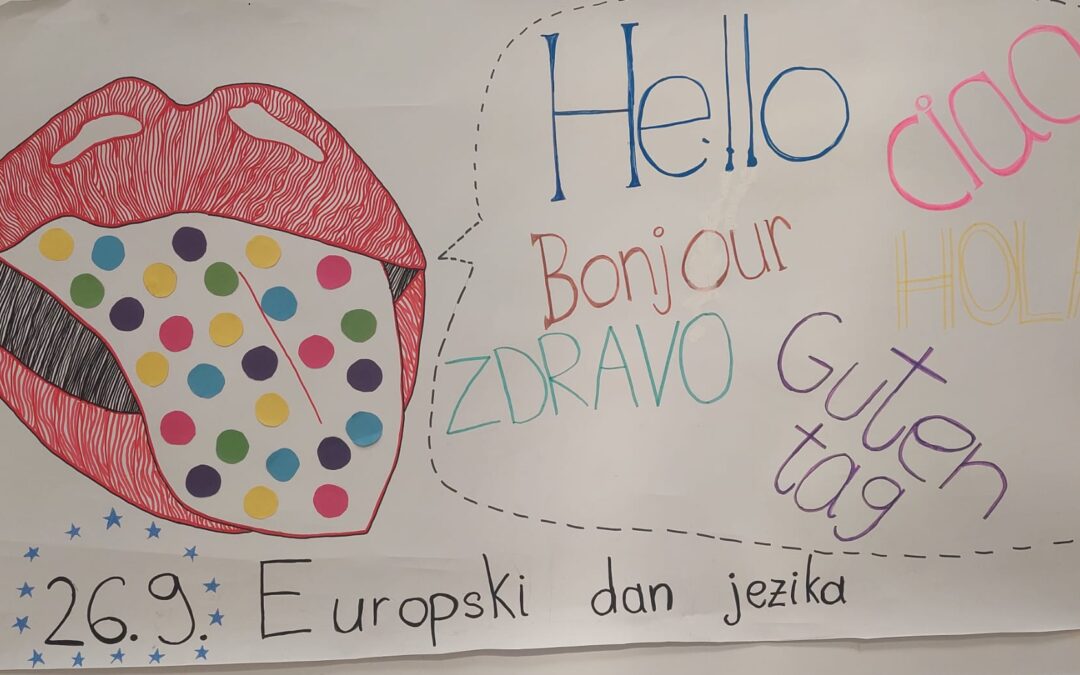 Hello
ciao
Bonjour
HOLA
ZDRAVO
Guten
tag
26.9. Europski dan jezika